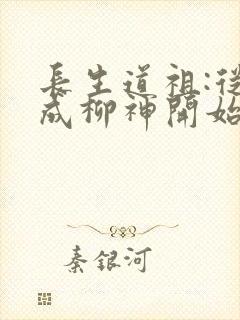 長生道祖:從
成柳神開始
秦銀河